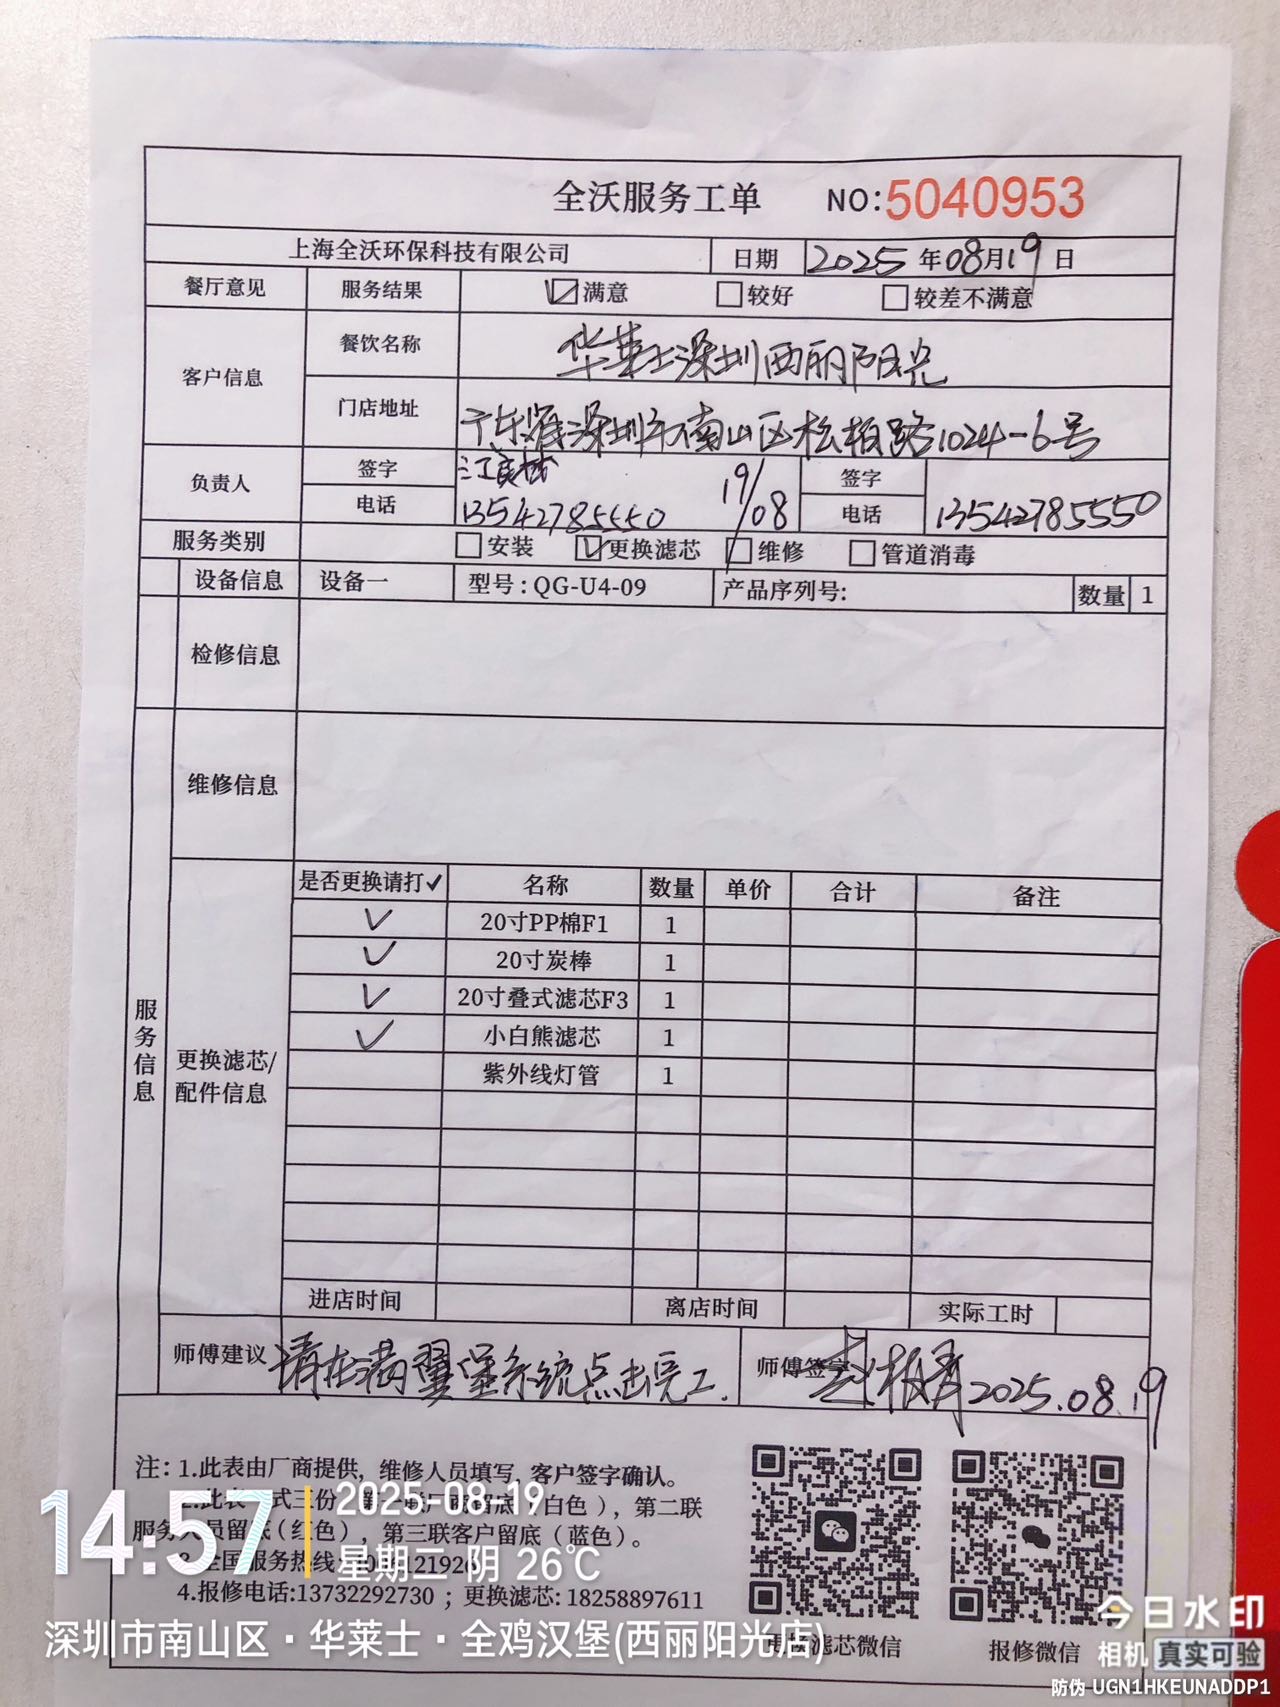 全沃服务工单 NO:5040953
上海全沃环保科技有限公司 日期 2025年08月19日
餐厅意见 服务结果 ☑满意 □较好 □较差不满意
客户信息 餐饮名称 华莱士深圳西丽阳光
门店地址 广东省深圳市南山区松柏路1024-6号
负责人 签字 19/08 签字
电话 13542785550 电话 13542785550
服务类别 □安装 ☑更换滤芯 □维修 □管道消毒
设备信息 设备一 型号:QG-U4-09 产品序列号: 数量 1
检修信息
维修信息
服务信息
更换滤芯/配件信息
是否更换请打✓ 名称 数量 单价 合计 备注
✓ 20寸PP棉F1 1
✓ 20寸炭棒 1
✓ 20寸叠式滤芯F3 1
✓ 小白熊滤芯 1
紫外线灯管 1
进店时间 离店时间 实际工时
师傅建议 请在满翼堡系统点击完工. 师傅签字 2025.08.19
注:1.此表由厂商提供,维修人员填写,客户签字确认。
2.此表一式三份,第一联厂商留底(白色),第二联
服务人员留底(红色),第三联客户留底(蓝色)。
3.全国服务热线:
4.报修电话:13732292730;更换滤芯:18258897611
更换滤芯微信 报修微信
14:57 2025-08-19
星期二 阴 26℃
深圳市南山区·华莱士·全鸡汉堡(西丽阳光店)
今日水印
相机 真实可验
防伪 UGN1HKEUNADDP1